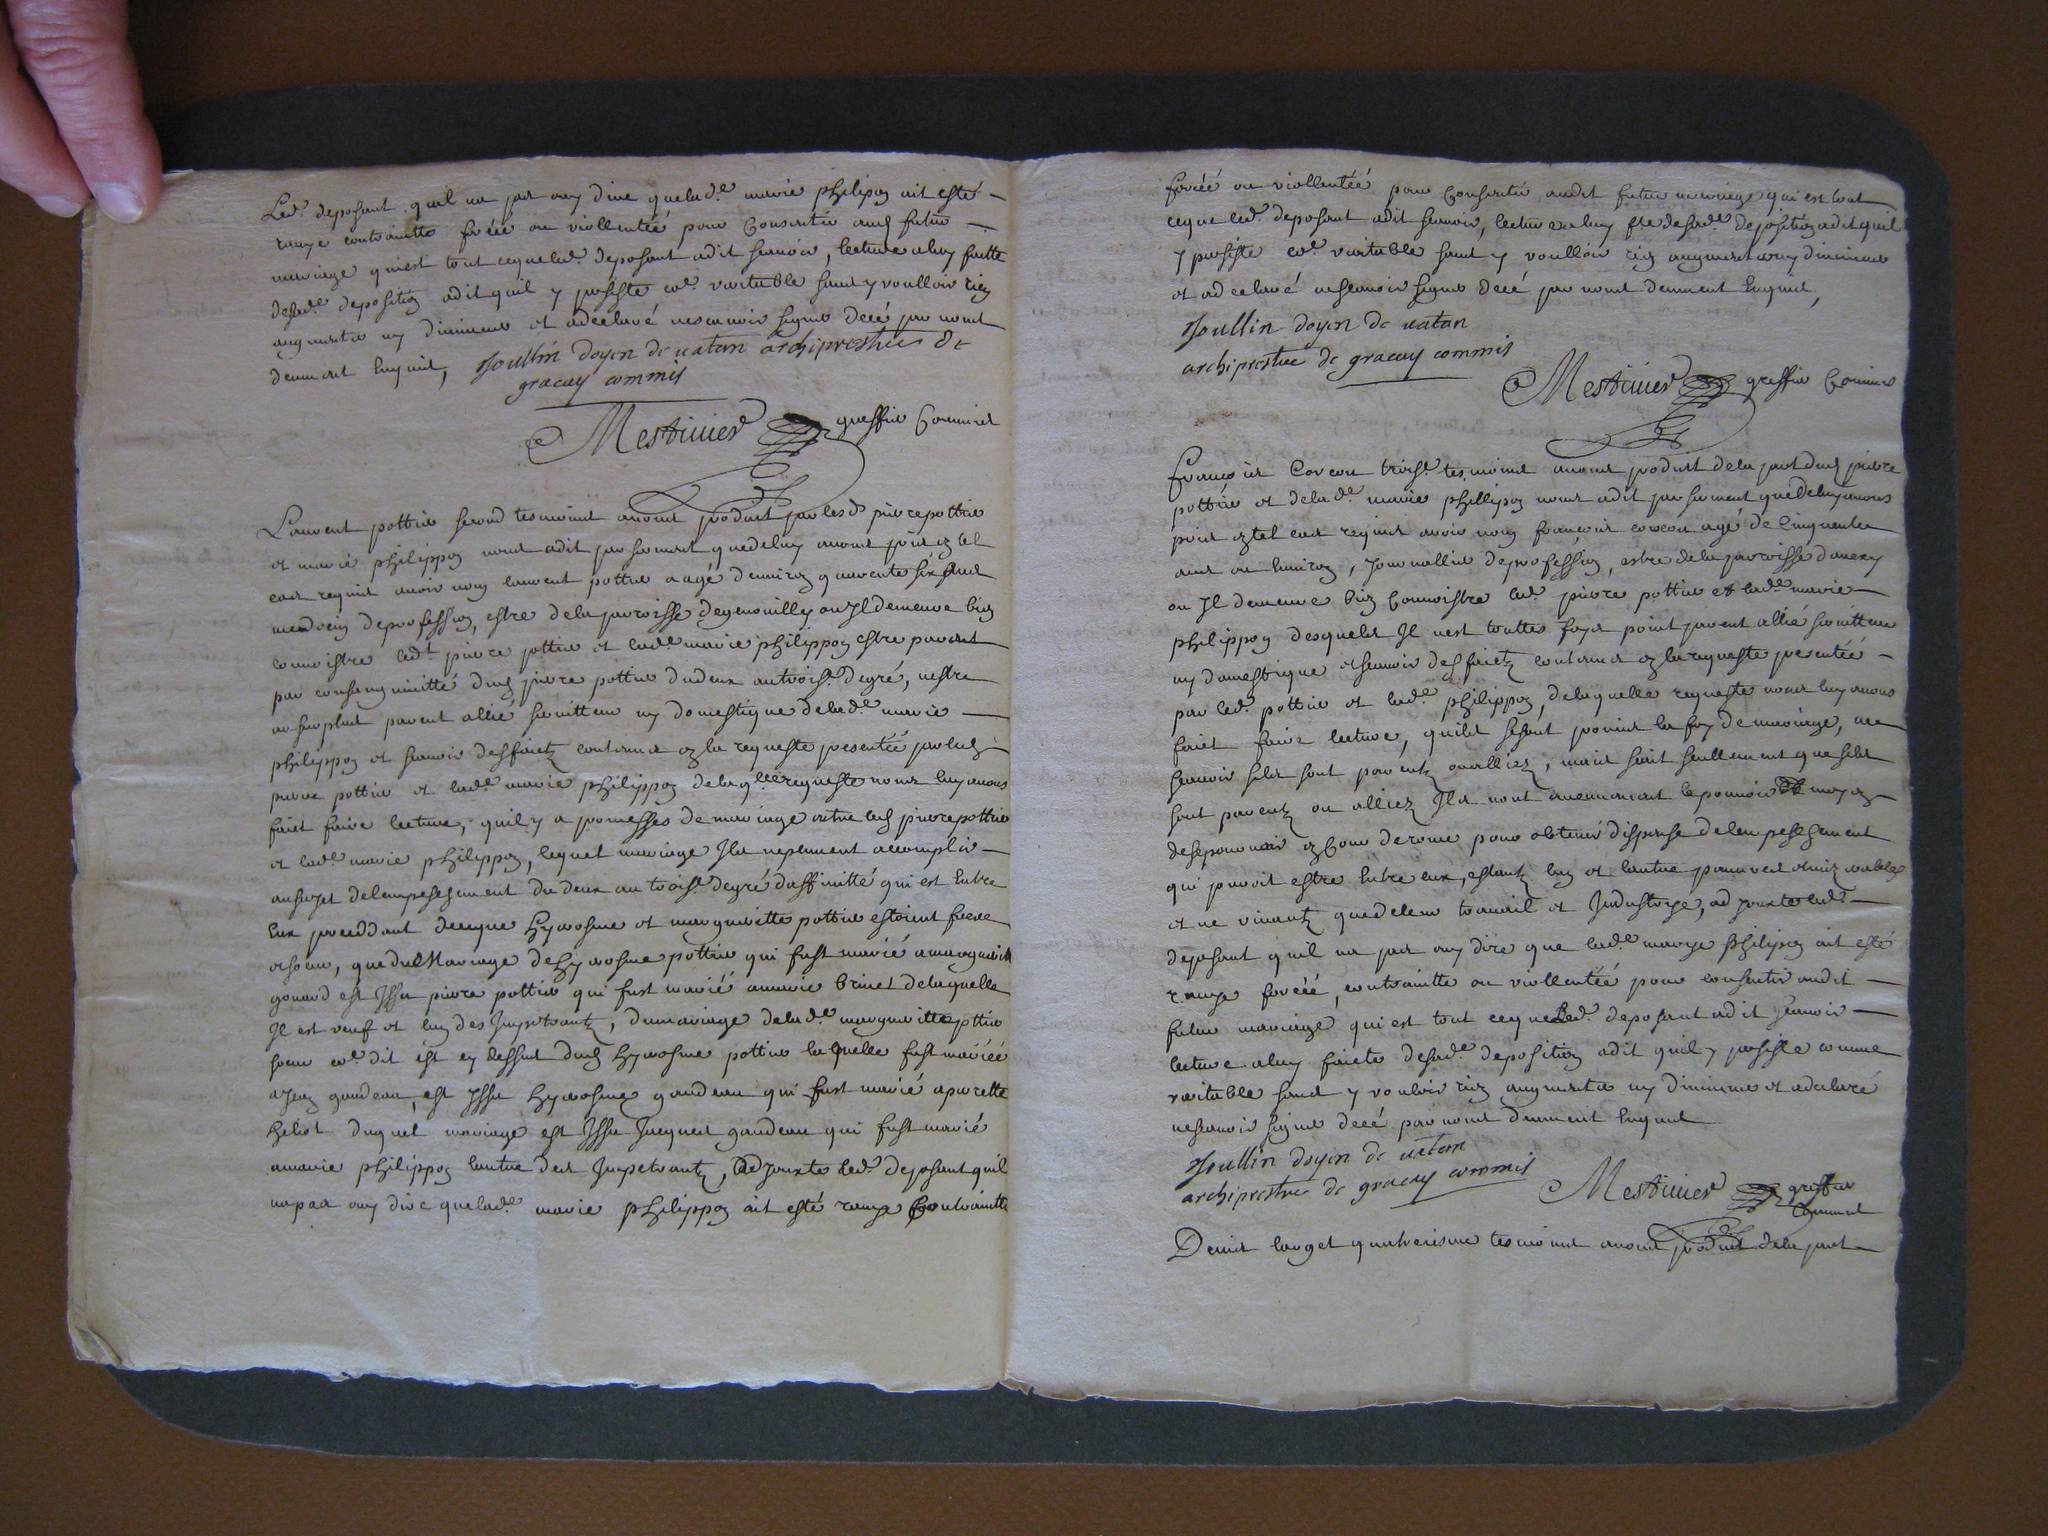 Led. deposant quil na pas ouy dire que lad.e marie philipon ait esté
ravye contrainte forcée ou viollentée pour consentir aud futur
mariage qui est tout ceque led. deposant a dit scavoir, lecture a luy faitte
desad.e deposition a dit quil y persiste co.e veritable sans y voulloir rien
augmenter ny diminuer et a declaré ne scavoir signer de ce par nous
deument enquis, Joullin doyen de vatan archiprestre de
gracay commis
Mestivier greffier Commis
Laurent pottier second tesmoint avons produit par lesd pierre pottier
et marie philippon nous a dit par serment que de luy avons pris en tel
cas requis avoir nom laurent pottier aagé denviron quarente six ans
de profession, estre de la parroisse degenouilly ou Il demeure bien
connoistre led.t pierre pottier et lad.e marie philippon estre parent
par consanguinitté dud pierre pottier du deux au trois.e degré, nestre
au surplus parent allié serviteur ny domestique de lad.e marie
philippon et scavoir des faictz contenus en la requeste presentée par led
pierre pottier et lad.e marie philippon de laq.lle requeste nous luy avons
faict faire lecture, quil y a promesses de mariage entre led pierre pottier
et lad.e marie philippon, lequel mariage Ils ne peuvent accomplir
au sujet de lempeschement du deux au trois.e degré daffinitté qui est entre
eux proceddant de ceque hyerosme et margueritte pottier estoient frere
et soeur, que du Mariage de hyerosme pottier qui fust marié a marguerite
gouard est Issu pierre pottier qui fust marié a marie brinet de laquelle
Il est veuf et lun des Impetrantz, du mariage de lad.e margueritte pottier
soeur co.e dit est cy dessus dud hyerosme pottier laquelle fust mariée
a Jean gaudeau, est Issu hyerosme gaudeau qui fust marié a perrette
helist duquel mariage est Issu Jacques gaudeau qui fust marié
a marie philippon lautre des Impetrantz, Adjouxte led. deposant quil
na pas ouy dire que lad.e marie philippon ait esté ravye Contrainte
forcée ou viollentée pour consentir audit futur mariage qui est tout
ceque led. deposant a dit scavoir, lecture a luy f.te desad.e deposition a dit quil
y persiste co.e veritable sans y voulloir rien augmenter ny diminuer
et a declaré ne scavoir signer de ce par nous deument enquis,
Joullin doyen de vatan
archiprestre de gracay commis
Mestivier greffier Commis
François trois.e tesmoint avons produit de la part dud pierre
pottier et de lad.e marie phillipon nous a dit par serment que de luy avons
pris en tel cas requis avoir nom françois agé de Cinquente
ans ou environ, Journallier de profession, estre de la parroisse
ou Il demeure bien Connoistre led. pierre pottier et lad.e marie
philippon desquels Il nest touttes foys point parent allié serviteur
ny domestique et scavoir des faictz contenus en la requeste presentée
par led. pottier et lad.e philippon, de laquelle requeste nous luy avons
faict faire lecture, quils se sont promis la foy de mariage, ne
scavoir sils sont parentz ou alliez, mais scait seullement que sils
sont parentz ou alliez Ils nont aucunement le pouvoir et moyen
de se pourvoir en Cour de rome pour obtenir dispense de lempeschement
qui peuvoit estre entre eux, estantz lun et lautre pauvres et
et ne vivantz que de leur travail et Industrye, adjouxte led.
deposant quil na pas ouy dire que lad.e marye philippon ait esté
ravye forcée, contrainte ou viollentée pour consentir audit
futur mariage qui est tout ceque Led. deposant a dit scavoir
lecture a luy faicte desad.e deposition a dit quil y persiste comme
veritable sans y vouloir rien augmenter ny diminuer et a declaré
ne scavoir signer de ce par nous deument enquis
Joullin doyen de vatan
archiprestre de gracay commis
Mestivier greffier
Commis
Denis quatriesme tesmoint avons produit de la part